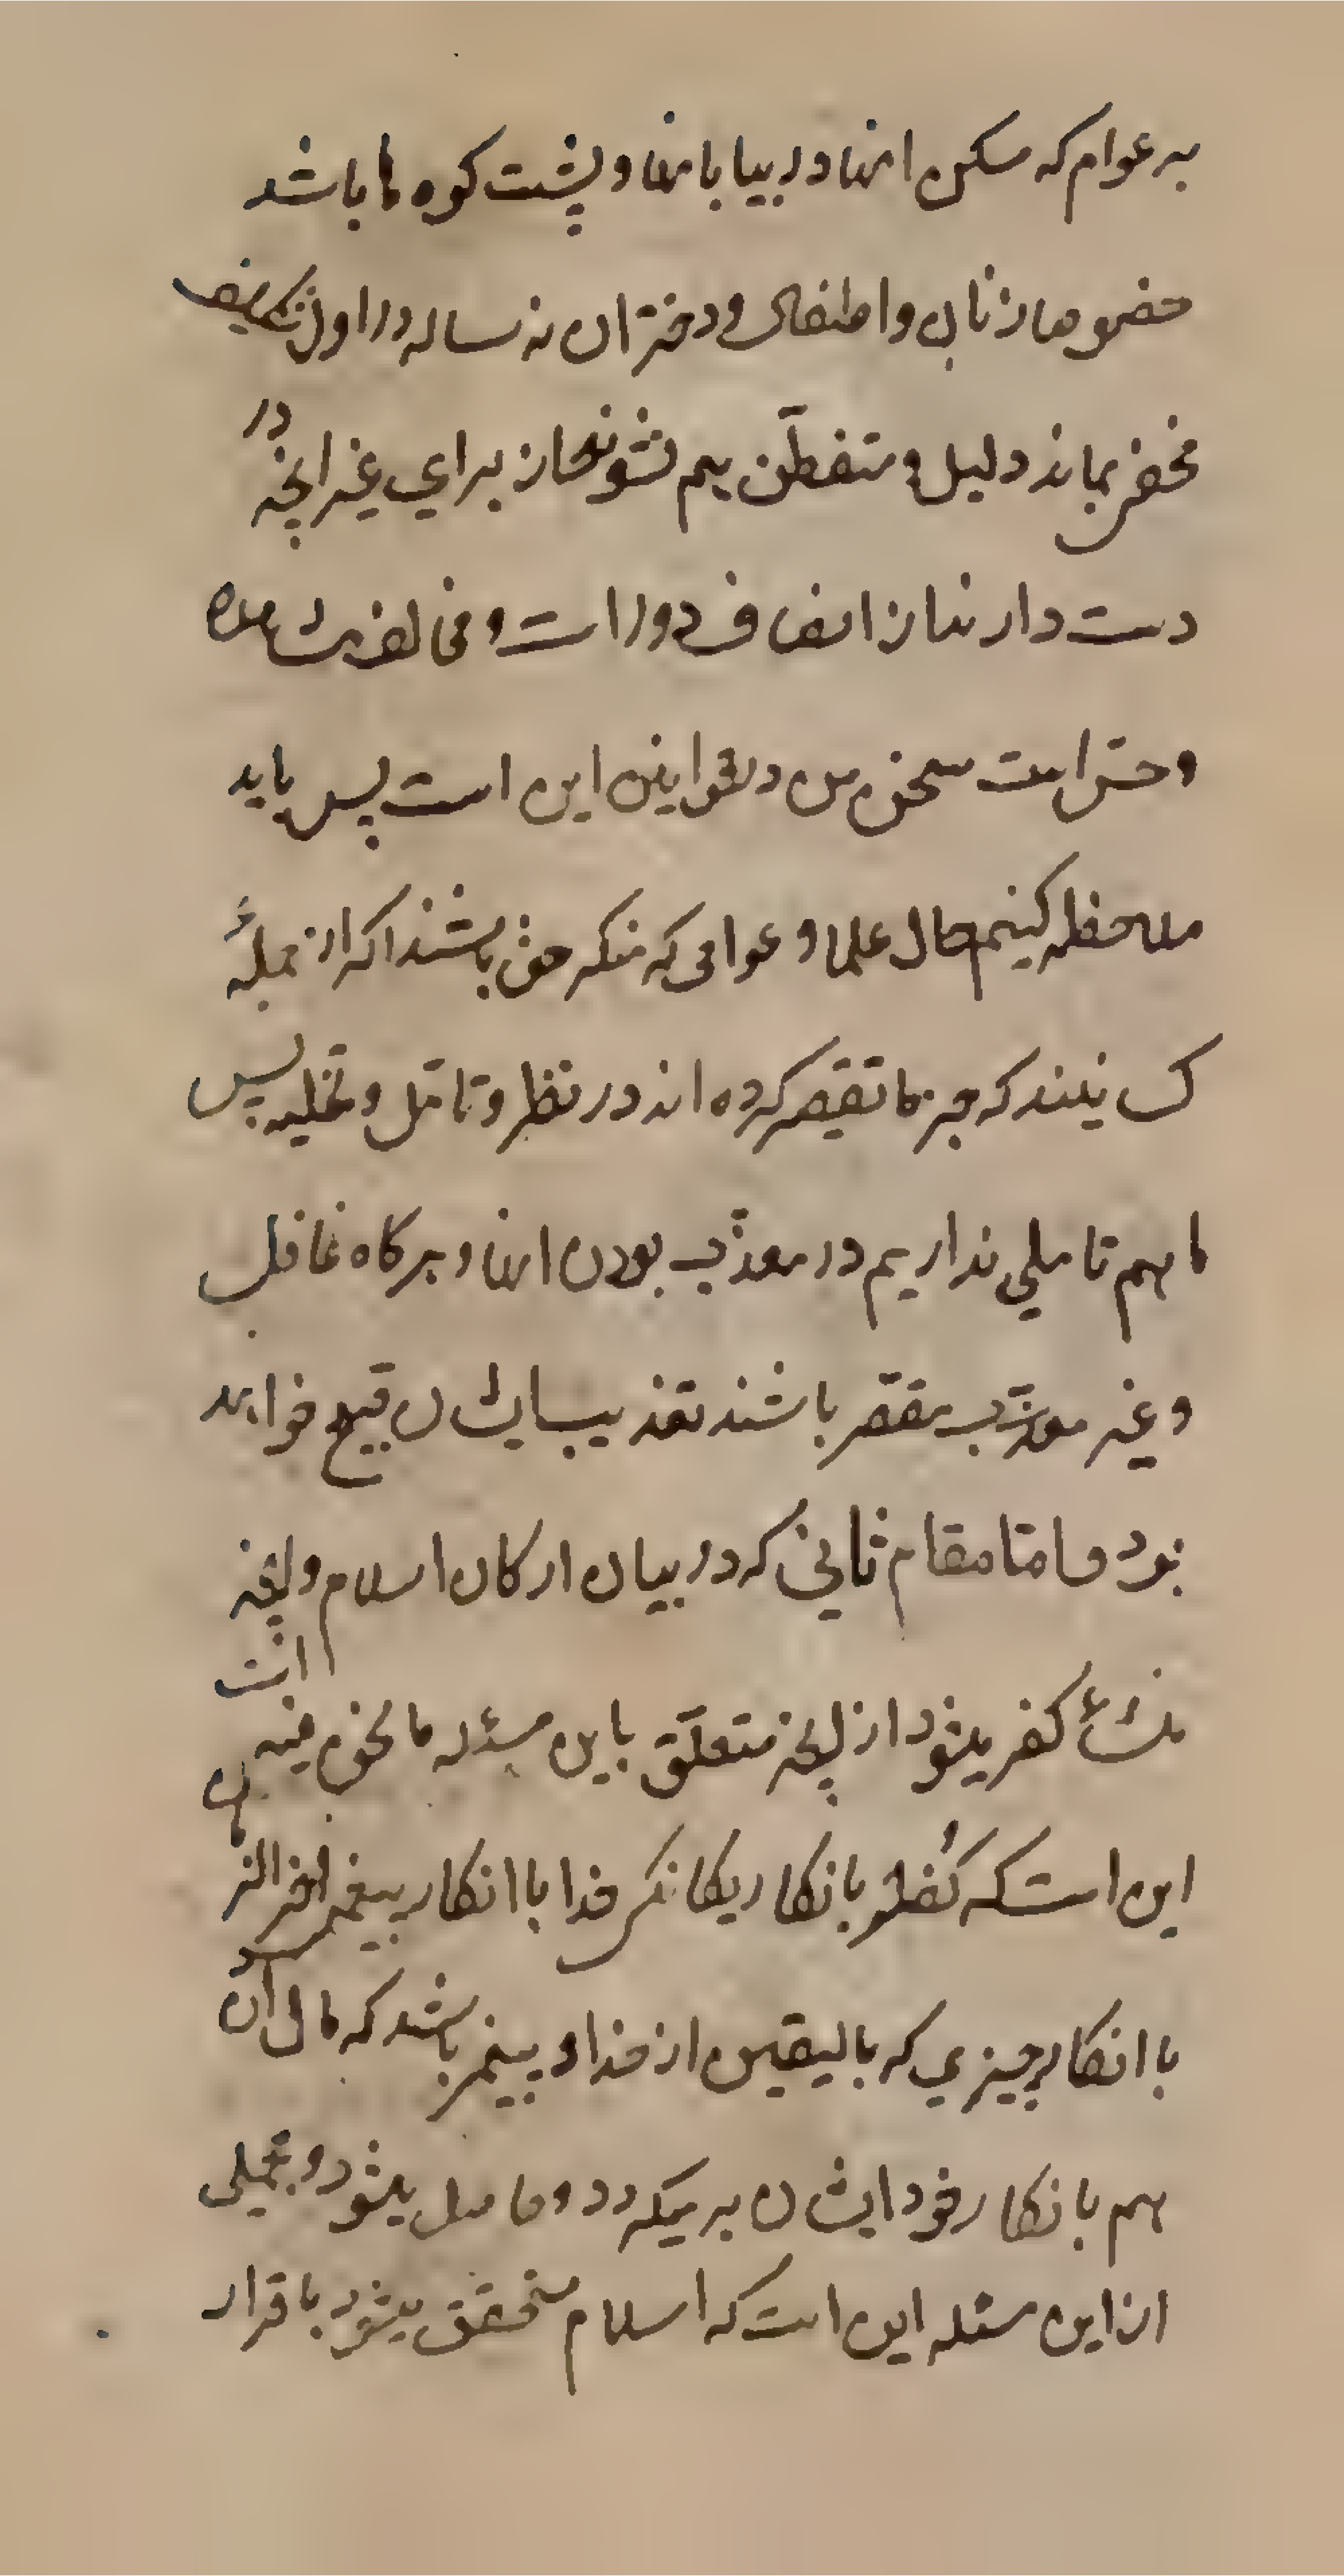 بر عوام که مسکن انها در بیابانها و پشت کوه ها باشد
خصوصا زنان و اطفال و دختران نه ساله در اول تکلیف
مخفی بماند دلیل و متفطّن هم نشوند از برای غیر انچه در
دست دارند از انصاف دور است و مخالف مشاهده
و حسّ است سخن من در قوانین این است پس باید
ملاحظه کنیم حال علما و عوامی که منکر حق باشند اکر از جملهٔ
کسانیند که جزما تقصیر کرده اند در نظر و تامّل و تخلیه پس
ما هم تاملی نداریم در معذّب بودن انها و هرکاه غافل
و غیر مقصّر باشند تعذیب ایشان قبیح خواهد
بود و امّا مقام ثانی که در بیان ارکان اسلام و انچه
منشأ کفر میشود از انچه متعلّق باین مسئله ما نحن فیه است
این است که کُفر یا بانکار یکانکی خدا یا انکار پیغمبر اخر الزمان
یا انکار چیزی که بالیقین از خدا و پیغمبر باشد که مال آن
هم بانکار خود ایشان برمیکردد و حاصل میشود و مجملی
از این مسئله این است که اسلام متحقق میشود باقرار